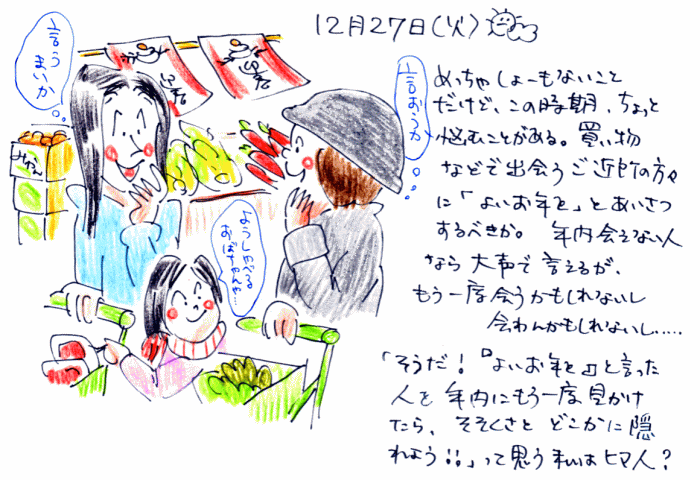 12月27日(火)
言う
まいか
言おうか
めっちゃしょーもないこと
だけど、この時期、ちょっと
悩むことがある。買い物
などで出会うご近所の方々
に「よいお年を」とあいさつ
するべきか。年内会えない人
なら大声で言えるが、
もう一度会うかもしれないし
会わんかもしれないし‥‥‥
「そうだ!『よいお年を』と言った
人を年内にもう一度見かけ
たら、そそくさとどこかに隠
れよう!!」って思う私はヒマ人?
みかん
ようしゃべる
おばちゃんや…